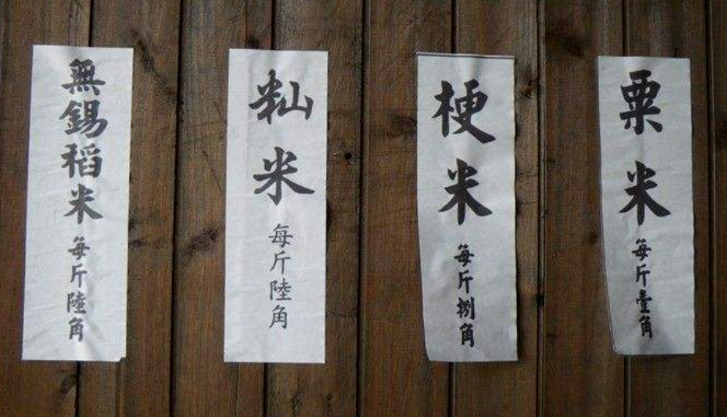 無錫稻米每斤陸角
籼米每斤陸角
梗米每斤捌角
粟米每斤壹角